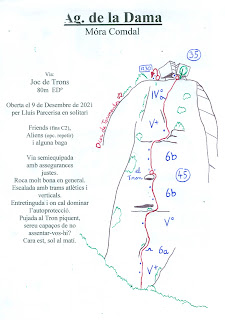 Ag. de la Dama
Móra Comdal
Via:
Joc de Trons
80m EDº
Oberta el 9 de Desembre de 2021
per Lluís Parcerisa en solitari
Friends (fins C2),
Aliens (opc. repetir)
i alguna baga
Via semiequipada
amb assegurances
justes.
Roca molt bona en general.
Escalada amb trams atlètics i
verticals.
Entretinguda i on cal dominar
l'autoprotecció.
Pujada al Tron piquent,
sereu capaços de no
assentar-vos-hi?
Cara est, sol al matí.
35
IVº
Vº
6b
el
Tron
45
6b
Vº
6a
Vº